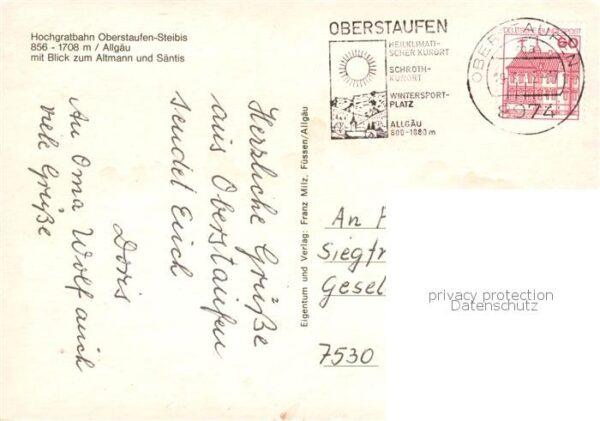 Hochgratbahn Oberstaufen-Steibis
856 - 1708 m / Allgäu
mit Blick zum Altmann und Säntis
Herzliche Grüße
aus Oberstaufen
sendet Euch
Doris
An Oma Wolf auch
viele Grüße
Eigentum und Verlag: Franz Milz, Füssen/Allgäu
OBERSTAUFEN
HEILKLIMATI-
SCHER KURORT
SCHROTH-
KURORT
WINTERSPORT-
PLATZ
ALLGÄU
800-1880 m
OBERSTAUFEN 1
8974
DEUTSCHE BUNDESPOST
60
An F
Siegfr
Gesel
7530
privacy protection
Datenschutz